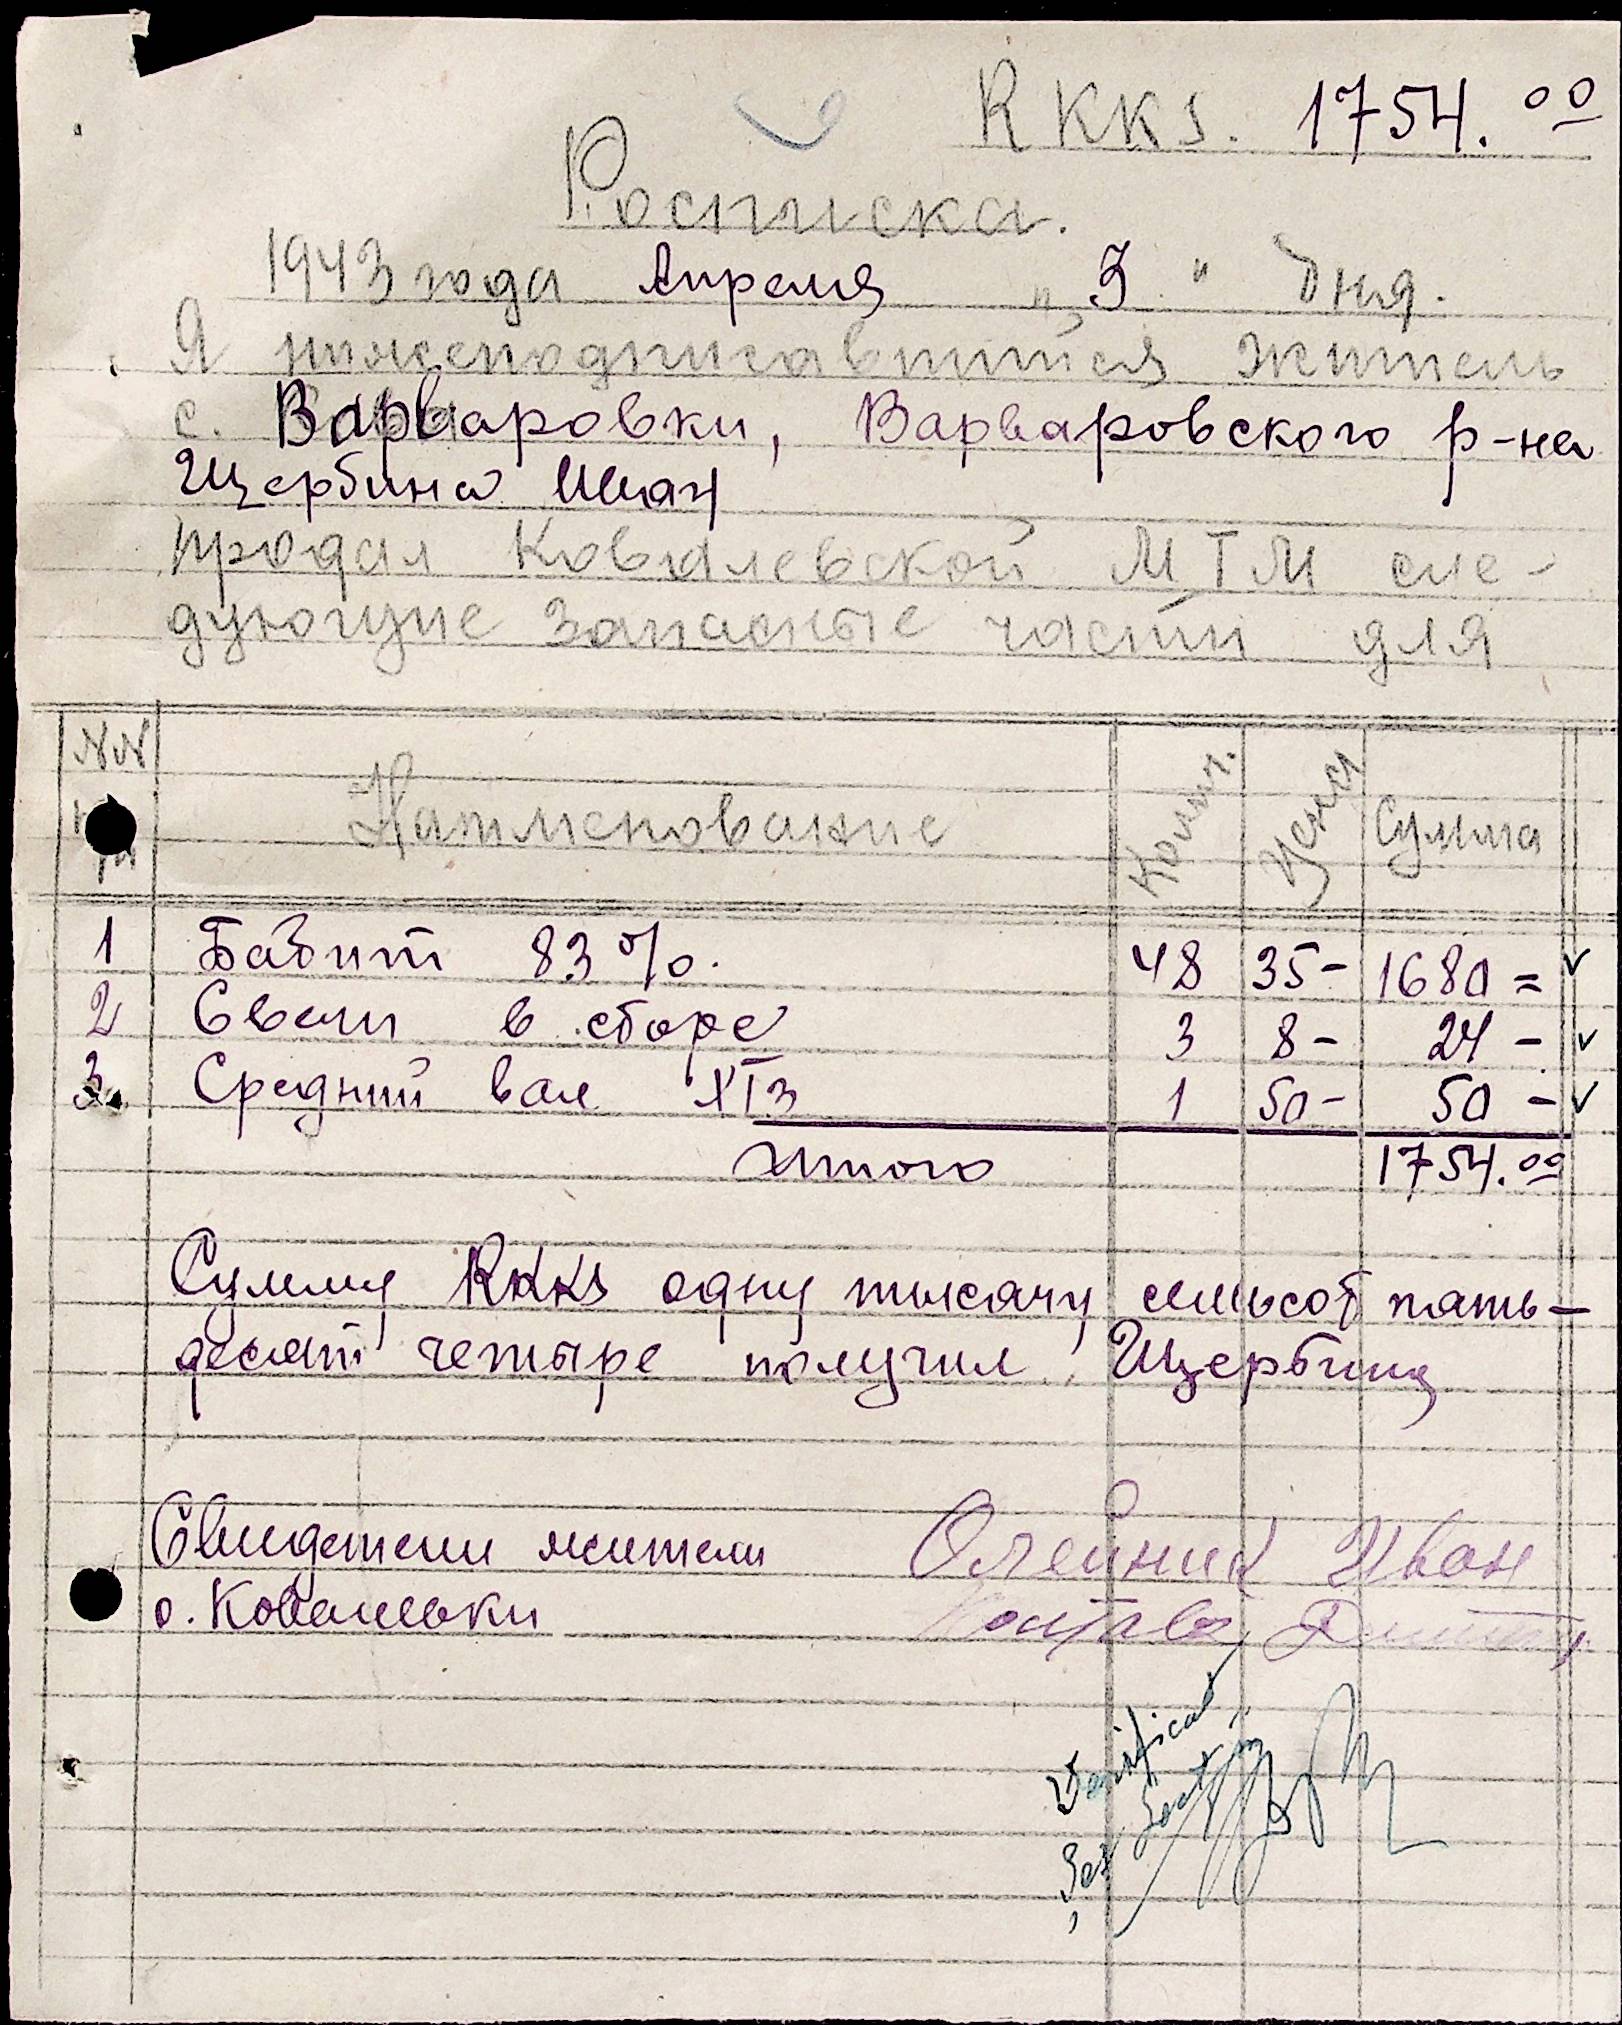 RKKS. 1754.00
Росписка.
1943 года Апреля "3" дня.
Я нижеподписавшийся житель
с. Варваровки, Варваровского р-на
Щербина Иван
продал Ковалевской МТМ сле-
дующие запасные части для
NN Наименование Колич. Цена Сумма
1 Бабит 83%. 48 35- 1680=
2 Свечи в сборе 3 8- 24-
3. Средний вал ХТЗ 1 50- 50-
Итого 1754.00
Сумму RKKS одну тысячу семьсот пять-
десят четыре получил Щербина
Свидетели жители Олейник Иван
с. Ковалевки
Verificat